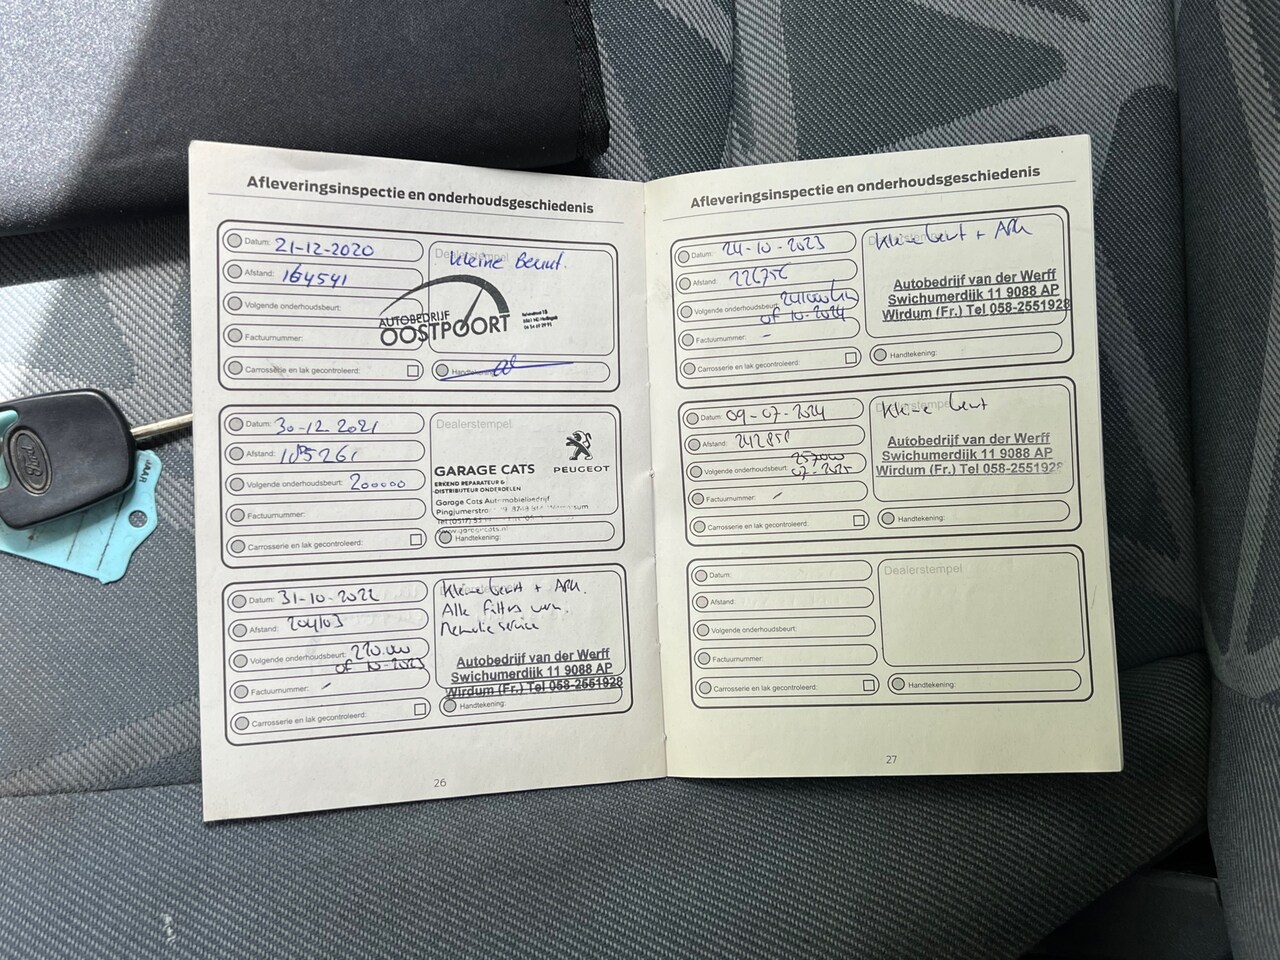 Afleveringsinspectie en onderhoudsgeschiedenis
Datum: 21-12-2020
Afstand: 164541
Volgende onderhoudsbeurt:
Factuurnummer:
Carrosserie en lak gecontroleerd:
Dealerstempel
kleine Beurt.
AUTOBEDRIJF
OOSTPOORT
Handtekening:
Datum: 30-12-2021
Afstand: 185261
Volgende onderhoudsbeurt: 200000
Factuurnummer:
Carrosserie en lak gecontroleerd:
Dealerstempel
PEUGEOT
GARAGE CATS
ERKEND REPARATEUR &
DISTRIBUTEUR ONDERDELEN
Garage Cats Automobielbedrijf
Handtekening:
Datum: 31-10-2022
Afstand: 204103
Volgende onderhoudsbeurt: 220.000
of 10-2023
Factuurnummer: -
Carrosserie en lak gecontroleerd:
Kleine beurt + APK.
Alle filters
service
Autobedrijf van der Werff
Swichumerdijk 11 9088 AP
Wirdum (Fr.) Tel 058-2551928
Handtekening:
26
Afleveringsinspectie en onderhoudsgeschiedenis
Datum: 24-10-2023
Afstand:
Volgende onderhoudsbeurt: 241000 km
of 10-2024
Factuurnummer: -
Carrosserie en lak gecontroleerd:
Kleine beurt + APK
Autobedrijf van der Werff
Swichumerdijk 11 9088 AP
Wirdum (Fr.) Tel 058-2551928
Handtekening:
Datum: 09-07-2024
Afstand: 242858
Volgende onderhoudsbeurt: 257000
07-2025
Factuurnummer: -
Carrosserie en lak gecontroleerd:
Dealerstempel
Kleine beurt
Autobedrijf van der Werff
Swichumerdijk 11 9088 AP
Wirdum (Fr.) Tel 058-2551928
Handtekening:
Datum:
Afstand:
Volgende onderhoudsbeurt:
Factuurnummer:
Carrosserie en lak gecontroleerd:
Dealerstempel
Handtekening:
27
JAAR